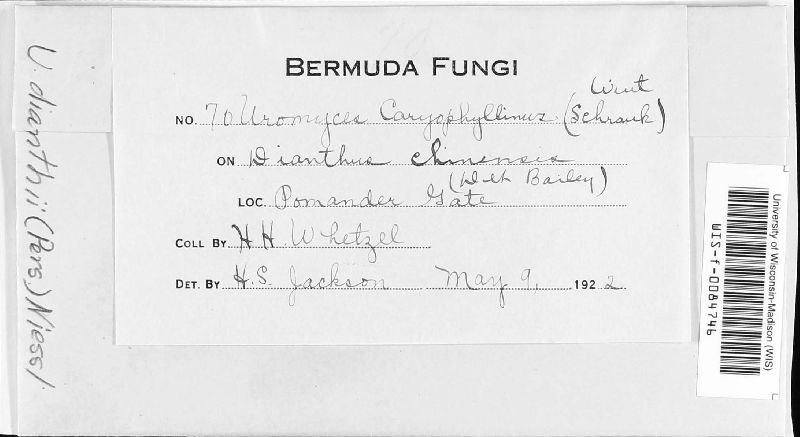 BERMUDA FUNGI
Wint
NO. 70 Uromyces Caryophyllinus (Schrank)
ON Dianthus chinensis
(Det Bailey)
LOC. Pomander Gate
COLL BY H H Whetzel
DET. BY H.S. Jackson May 9, 1922
U. dianthii (Pers.) Niessl
University of Wisconsin-Madison (WIS)
WIS-f-0084746